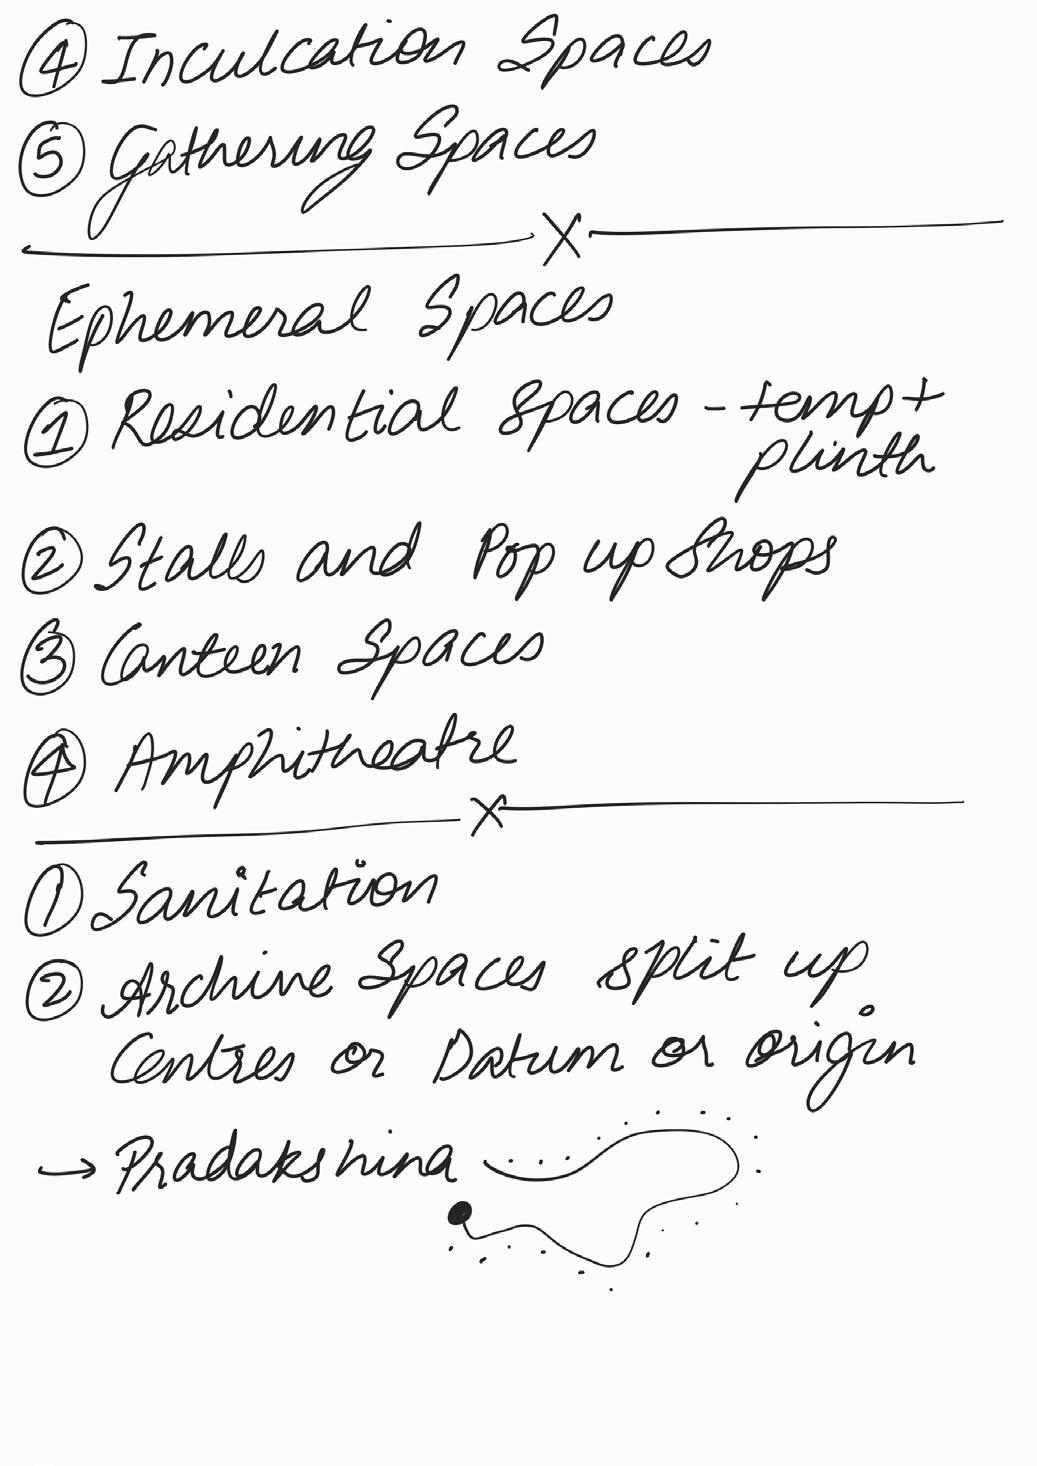 ④ Inculcation Spaces
⑤ Gathering Spaces
X
Ephemeral Spaces
① Residential Spaces - temp +
plinth
② Stalls and Pop up Shops
③ Canteen Spaces
④ Amphitheatre
X
① Sanitation
② Archive Spaces split up
Centres or Datum or origin
→ Pradakshina